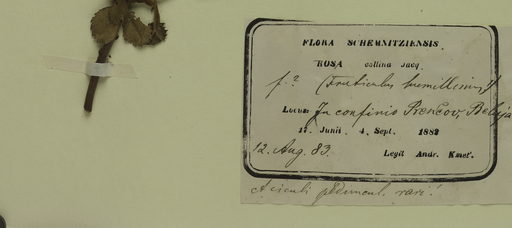 FLORA SCHEMNITZIENSIS
ROSA collina Jacq.
f.? (Fruticulus humillimus?)
Locus: In confinio Prenčov, Beluja
17. Junii. 4. Sept. 1882
12. Aug. 83. Legit Andr. Kmeť.
Aciculi peduncul. rari!